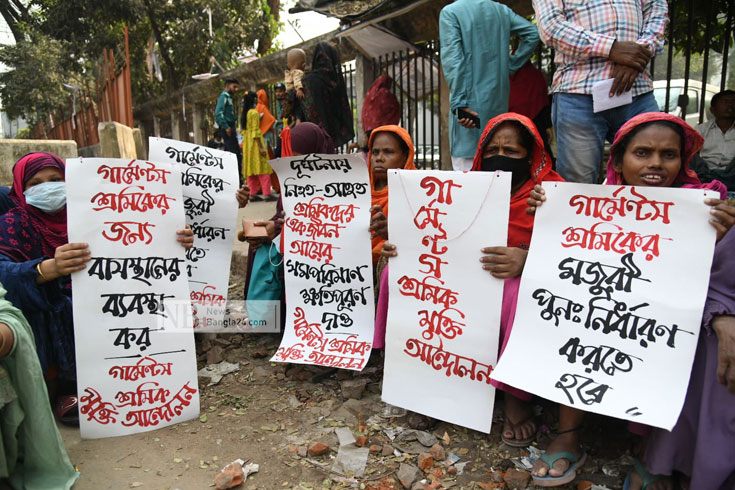 গার্মেন্টস
শ্রমিকের
জন্য
বাসস্থানের
ব্যবস্থা
কর
গার্মেন্টস
শ্রমিক
মুক্তি আন্দোলন
গার্মেন্টস
শ্রমিকের
দূর্ঘটনায়
নিহত-আহত
শ্রমিকদের
এক জীবন
আয়ের
সমপরিমাণ
ক্ষতিপূরণ
দাও
গার্মেন্টস শ্রমিক
মুক্তি আন্দোলন
গার্মেন্টস
শ্রমিক
মুক্তি
আন্দোলন
গার্মেন্টস
শ্রমিকের
মজুরী
পুনঃনির্ধারণ
করতে
হবে
News
Bangla24.com